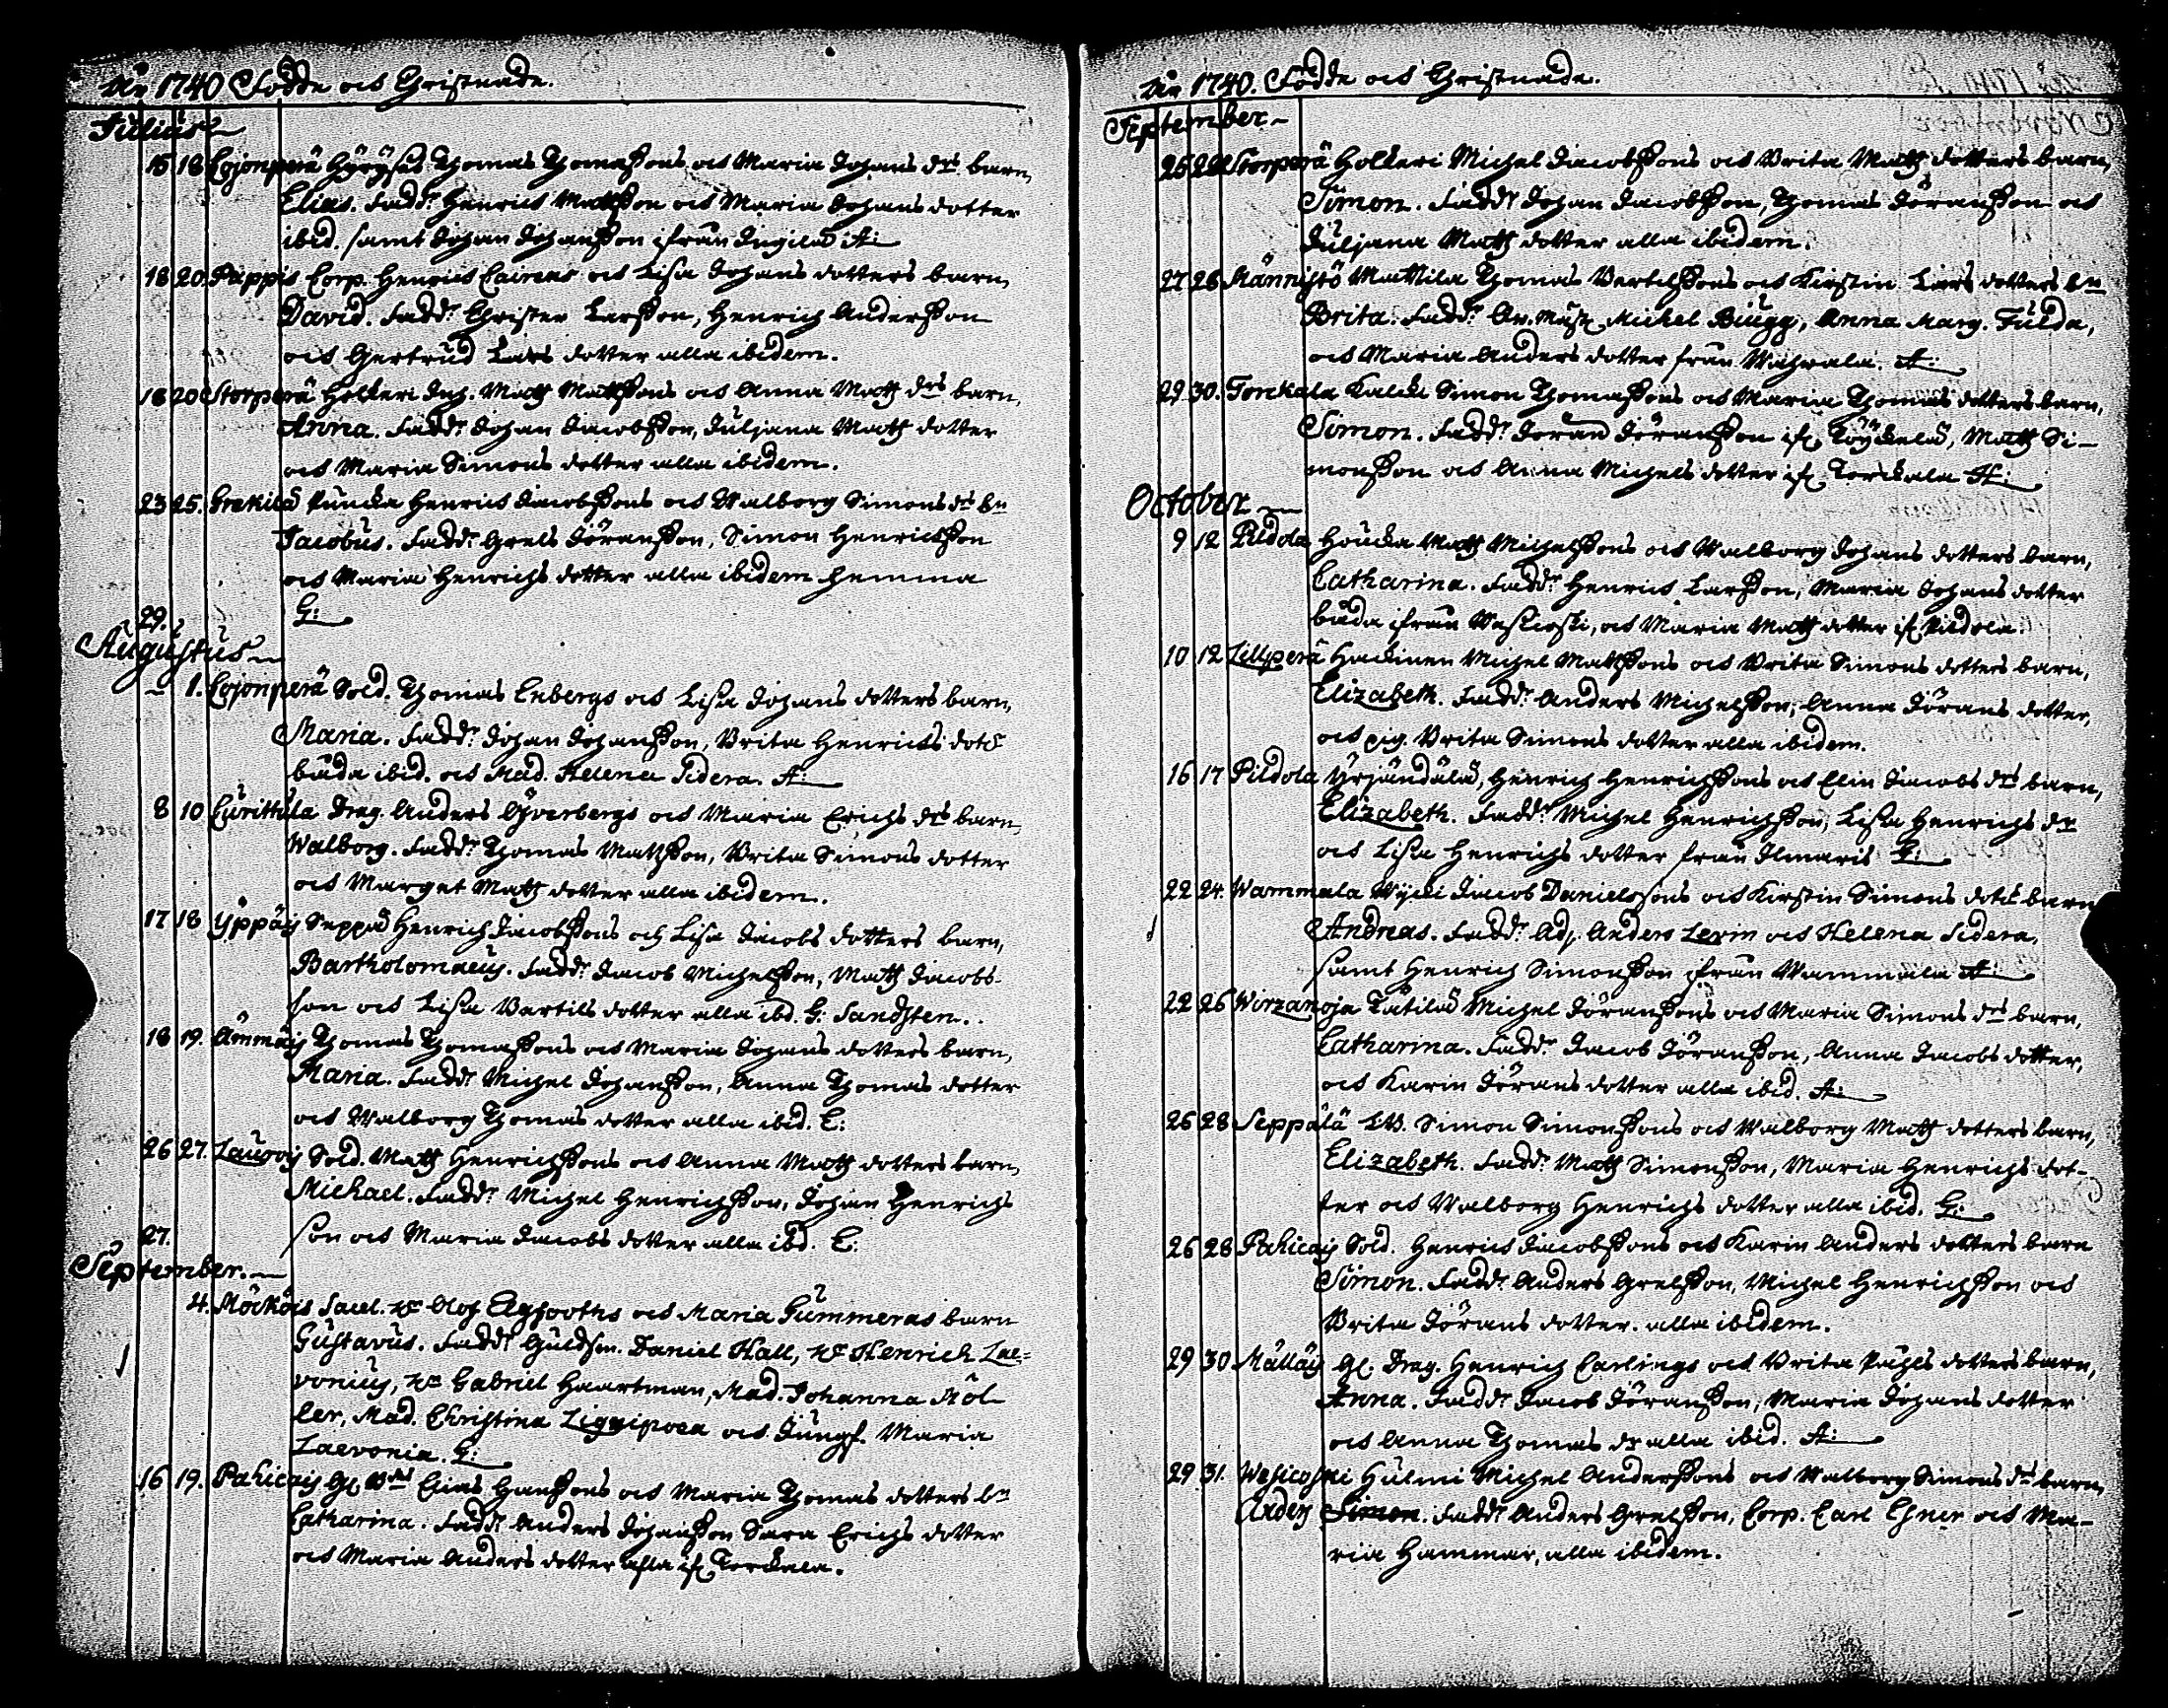 An 1740 Födde och Christnade.
Julius
15 18 Cojonperä Thomas Thomæssons och Maria Johans drs barn,
Elias. Fadd. Henrich Mattsson och Maria Johans dotter
ibid. samt Johan Johansson ifrån A:
18 20. Pappis Corp. Henrich och Lisa Johans dotters barn,
David. Fadd. Christer Larsson, Henrich Andersson
och Gertrud Lars dotter alla ibidem.
18 20 Storperä Holkeri Matts Mattssons och Anna Matts drs barn,
Anna. Fadd. Johan Jacobsson, Juliana Matts dotter
och Maria Simons dotter alla ibidem.
23 25. Henrich Jacobssons och Walborg Simons drs bn
Jacobus. Fadd. Grels Jöransson, Simon Henricsson
och Maria Henrichs dotter alla ibidem hemma
29. G:
Augustus
1. Cojonperä Sold. Thomas Enbergs och Lisa Johans dotters barn,
Maria. Fadd. Johan Johansson, Brita Henrichs dott
båda ibid. och Mad. Helena Sidera. A:
8 10 Curittula Drag. Anders Öfverbergs och Maria Erichs drs barn,
Walborg. Fadd. Thomas Mattsson, Brita Simons dotter
och Marget Matts dotter alla ibidem.
17 18 Yppäis Seppä Henrich Jacobssons och Lisa Jacobs dotters barn,
Bartholomaeus. Fadd. Jacob Michelsson, Matts Jacobs-
son och Lisa Bertils dotter alla ibd. G: Sandsten.
18 19. Ämmäis Thomas Thomassons och Maria Johans dotters barn,
Maria. Fadd. Michel Johansson, Anna Thomas dotter
och Walborg Thomas dotter alla ibid. C:
26 27. Laurois Sold. Matts Henrichssons och Anna Matts dotters barn,
Michael. Fadd. Michel Henrichsson, Johan Henrichs
27. son och Maria Jacobs dotter alla ibd. C:
September.
4. Olof och Maria Gummeras barn
Gustavus. Fadd. Guldsm. Daniel Hall, Hr Henrich Lae-
vonius, Hr Gabriel Haartman, Mad. Johanna Möl-
ler, Mad. Christina Lignipoea och Jungf. Maria
Laevonia. G:
16 19. Pahicais Elias Hanssons och Maria Thomas dotters bn
Catharina. Fadd. Anders Johansson Sara Erichs dotter
och Maria Anders dotter alla if. Torckala.
An 1740. Födde och Christnade.
September
26 28 Storperä Holkeri Michel Jacobssons och Brita Matts dotters barn,
Simon. Fadd. Johan Jacobsson, Thomas Jöransson och
Juljana Matts dotter alla ibidem.
27 28 Männistö Mattila Thomas Bertelssons och Kirstin Lars dotters bn
Brita. Fadd. Michel Biugg, Anna Marg. Fulda,
och Maria Anders dotter från A:
29 30. Torckala Simon Thomassons och Maria Thomas dotters barn,
Simon. Fadd. Jöran Jöransson if. Matts Si-
monsson och Anna Michels dotter if. Torckala A:
October
9 12 Pildola Houcka Matts Michelssons och Walborg Johans dotters barn,
Catharina. Fadd. Henrich Larsson, Maria Johans dotter
båda ifrån och Maria Matts dotter if. Pildola.
10 12 Lillperä Hackinen Michel Mattssons och Brita Simons dotters barn,
Elizabeth. Fadd. Anders Michelsson, Anna Jörans dotter,
och pig. Brita Simons dotter alla ibidem.
16 17 Pildola Yrjändälä, Henrich Henrichssons och Elin Jacobs drs barn,
Elizabeth. Fadd. Michel Henrichsson, Lisa Henrichs dr
och Lisa Henrichs dotter från Ilmaris G:
22 24. Wammala Wycki Jacob Danielssons och Kirstin Simons dott barn
Andreas. Fadd. Adj. Anders Levin och Helena Sidera,
samt Henrich Simonsson ifrån Wammala A:
22 26 Wirzanoja Tätilä Michel Jöranssons och Maria Simons drs barn,
Catharina. Fadd. Jacob Jöransson, Anna Jacobs dotter,
och Karin Jörans dotter alla ibid. A:
26 28 Seppälä Simon Simonssons och Walborg Matts dotters barn,
Elizabeth. Fadd. Matts Simonsson, Maria Henrichs dot-
ter och Walborg Henrichs dotter alla ibid. G:
26 28 Pahicais Sold. Henrich Jacobssons och Karin Anders dotters barn
Simon. Fadd. Anders Grelsson, Michel Henrichsson och
Brita Jörans dotter. alla ibidem.
29 30 Mälläis Gl. Drag. Henrich Carlings och Brita Påhls dotters barn,
Anna. Fadd. Jacob Jöransson, Maria Johans dotter
och Anna Thomas dr alla ibid. A:
29 31. Wesicoski Hulmi Michel Anderssons och Walborg Simons drs barn,
Anders Simon. Fadd. Anders Grelsson, Corp. Carl och Ma-
ria Hammar, alla ibidem.